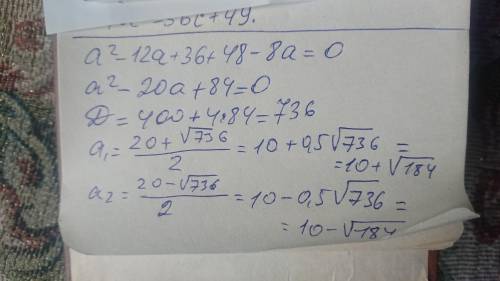 a² - 12a + 36 + 48 - 8a = 0
a² - 20a + 84 = 0
D = 400 + 4·84 = 736
a₁ = (20 + √736)/2 = 10 + 0,5√736 =
= 10 + √184
a₂ = (20 - √736)/2 = 10 - 0,5√736 =
= 10 - √184